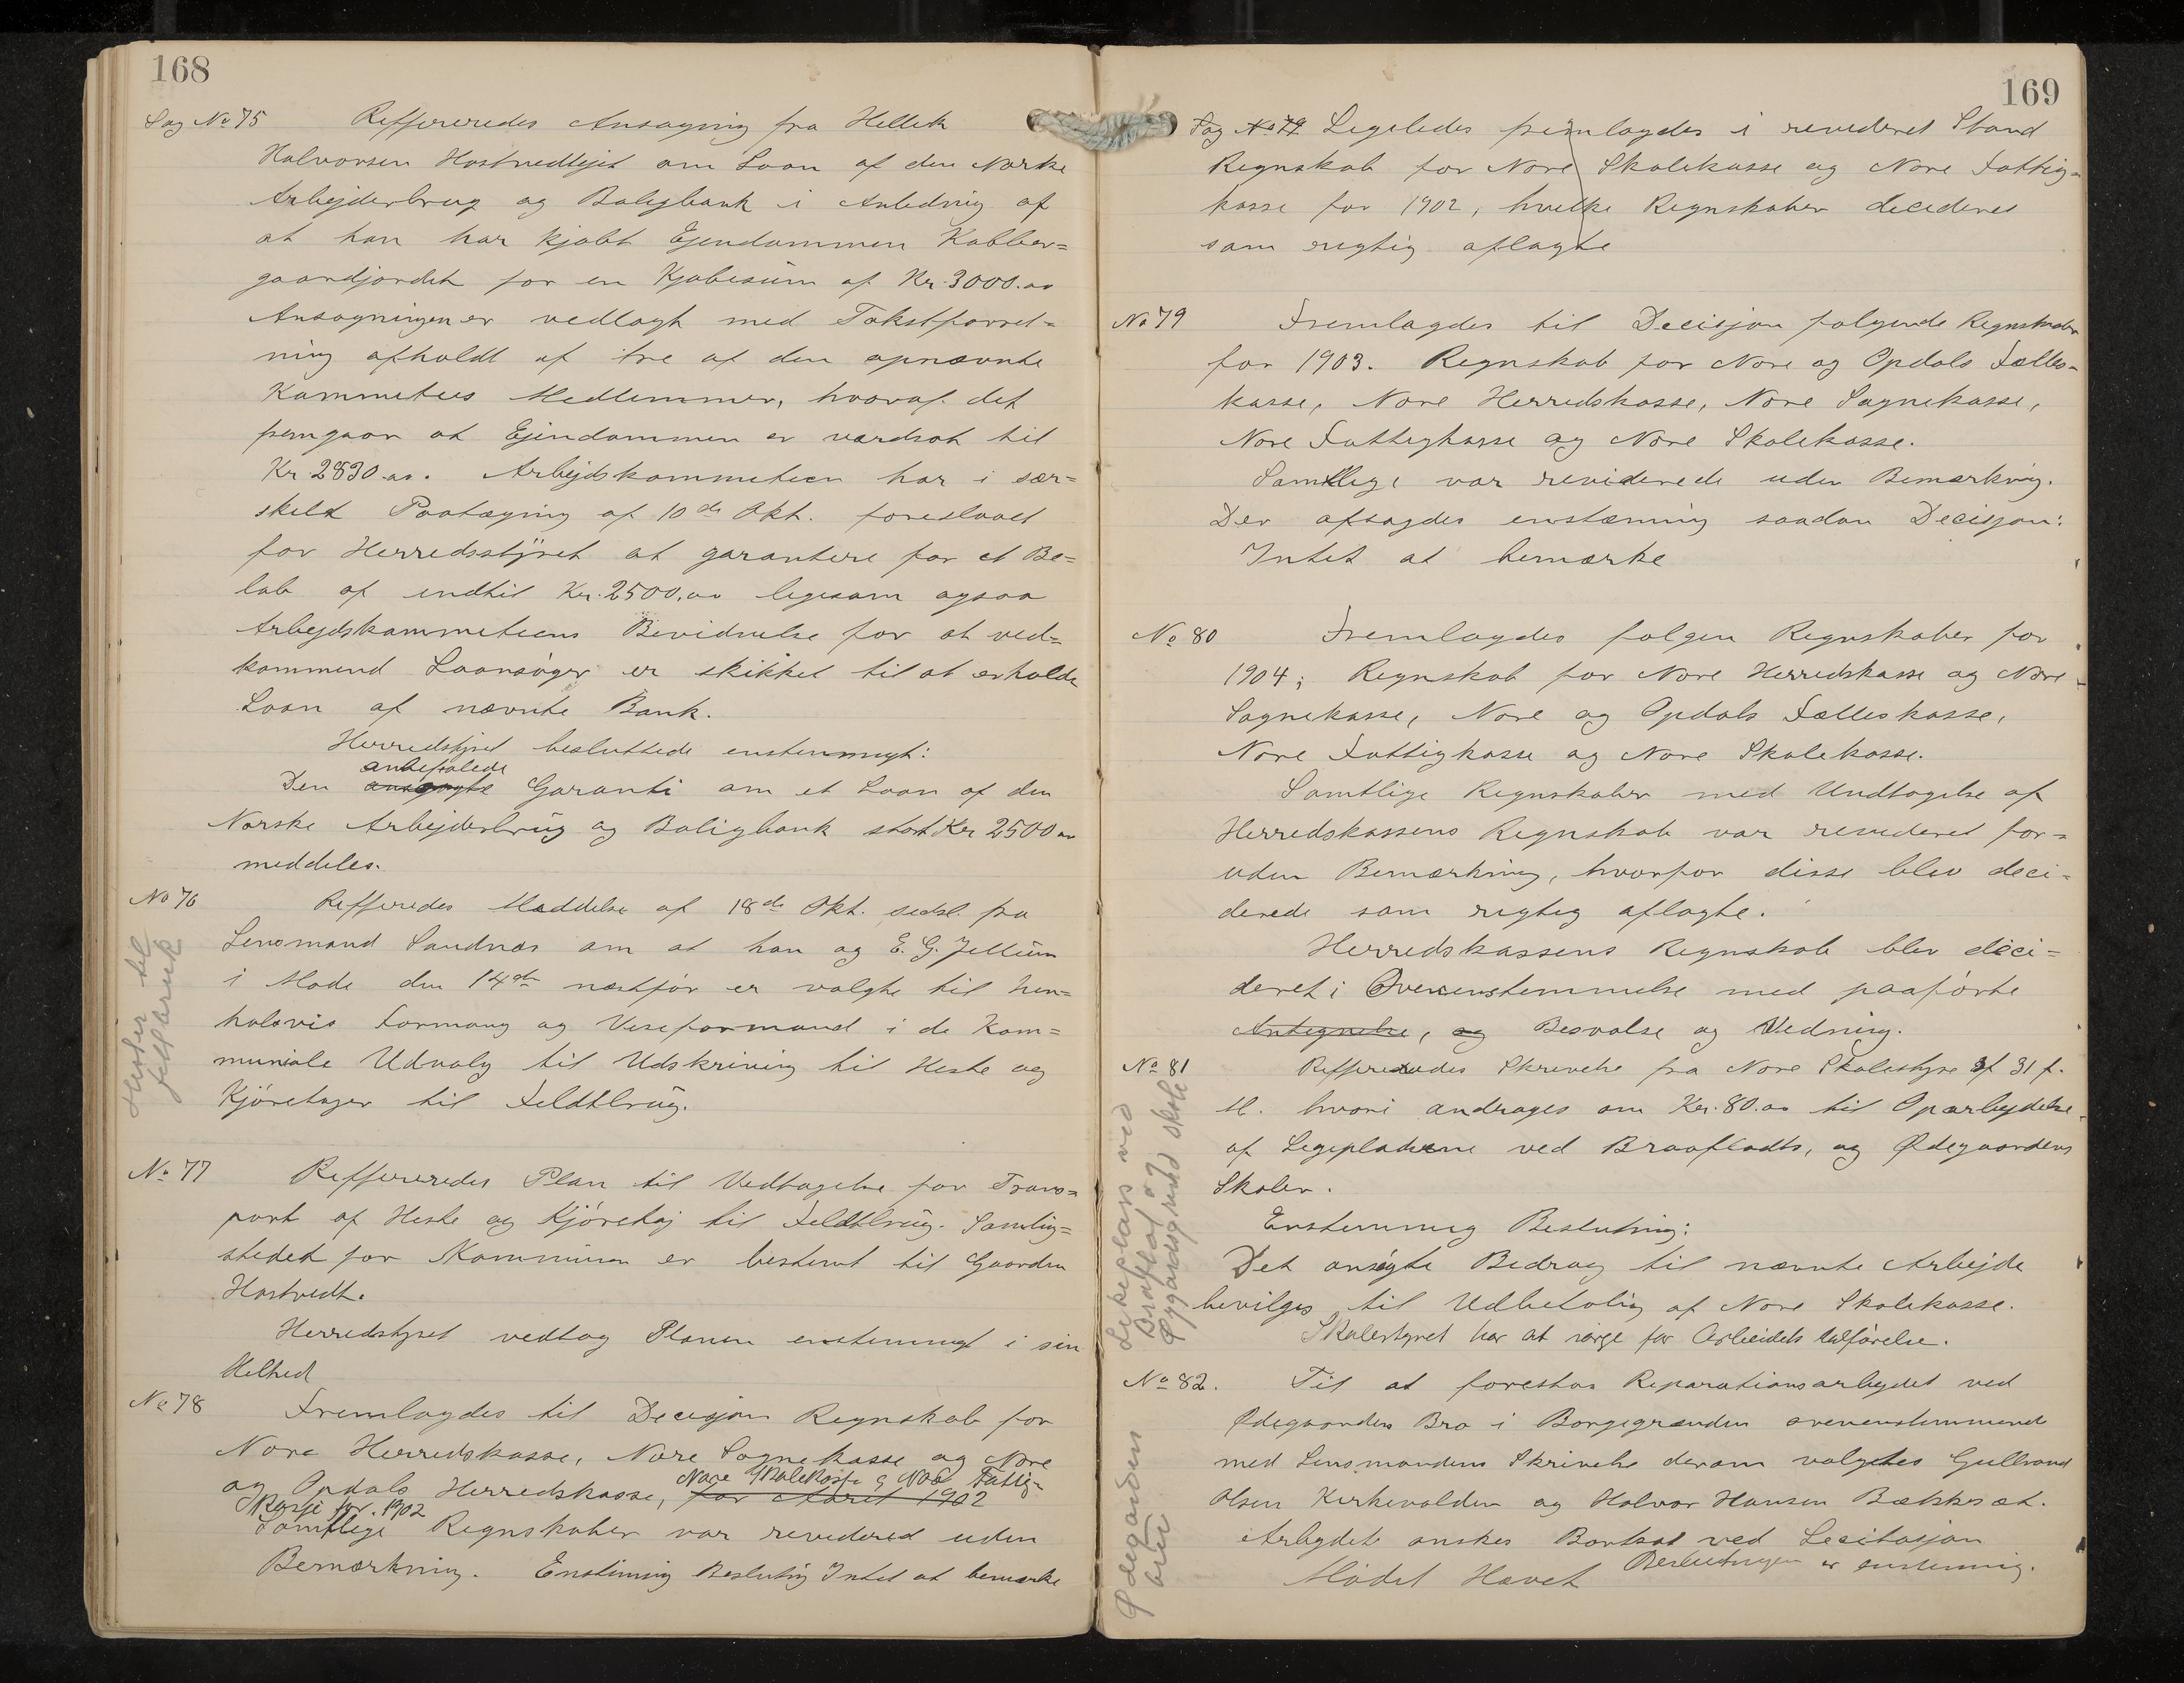 168
Sag No 75 Reffereredes Ansøgning fra Hellek
Halvorsen Hostvedtejet om Laan af den Norske
Arbejderbrug og Boligbank i Anledning af
at han har kjøbt Ejendommen Kobber=
gaardjordet for en Kjøbesum af Kr. 3000.00
Ansøgningen er vedlagt med Takstforret=
ning afholdt af tre af den opnævnte
Kommitees Medlemmer, hvoraf det
fremgaar at Ejendommen er værdsat til
Kr. 2830.00. Arbejdskommiteen har i sær=
skild Paategning af 10de Okt. foreslaaet
for Herredsstyret at garantere for et Be=
løb af indtil Kr. 2500.00 ligesom ogsaa
Arbejdskommiteens Bevidnelse for at ved=
kommend Laansøger er skikket til at erholde
Laan af nævnte Bank.
Herredstyret besluttede enstemmigt:
anbefalede
Den ansøgte Garanti om et Laan af den
Norske Arbejderbrug og Boligbank stort Kr 2500 00
meddeles.
No 76 Refferedes Meddelse af 18de Okt. sidsl. fra
Lensmand Sandnæs om at han og E. G. Jellum
i Møde den 14de næstfør er valgte til hen=
holsvis Formang og Viseformand i de Kom=
munale Udvalg til Udskrivning til Heste og
Kjøretøger til Feldtbrug.
Hester til
feltbruk
No 77 Reffereredes Plan til Vedtagelse for Trans=
port af Heste og Kjøretøj til Feldtbrug. Samling=
stedet for Kommunen er bestemt til Gaarden
Hostvedt.
Herredstyret vedtog Planen enstemmigt i sin
Helhed
No 78 Fremlagdes til Decisjon Regnskab for
Nore Herredskasse, Nore Sognekasse og Nore
og Opdals Herredskasse, for Aaret 1902
Nore Skolekasse & Nore Fattig-
Kasse for 1902
Samtlige Regnskaber var revidered uden
Bemærkning. Enstemig Beslutnig Intet at bemærke
169
Sag No 79 Ligeledes fremlagdes i revideret Stand
Regnskab for Nore Skolekasse og Nore Fattig=
kasse for 1902, hvilke Regnskaber decideres
som rigtig aflagte
No 79 Fremlagdes til Decisjon følgende Regnskaber
for 1903. Regnskab for Nore og Opdals Fælles=
kasse, Nore Herredskasse, Nore Sognekasse,
Nore Fattigkasse og Nore Skolekasse.
Samtlige var reviderede uden Bemærkning.
Der afsagdes enstæmmig saadan Decisjon:
Intet at bemærke
No 80 Fremlagdes følgen Regnskaber for
1904; Regnskab for Nore Herredskasse og Nore
Sognekasse, Nore og Opdals Fælleskasse,
Nore Fattigkasse og Nore Skolekasse.
Samtlige Regnskaber med Undtagelse af
Herredskassens Regnskab var revideret for=
uden Bemærkning, hvorfor disse blev deci=
derede som rigtig aflagte.
Herredskassens Regnskab blev deci=
deret i Overensstemmelse med paaførte
Antegnelse, og Besvalse og Vedning.
No 81 Refereredes Skrivelse fra Nore Skolestyre af 31 f.
M. hvori andrages om Kr. 80.00 til Oparbejdelse
af Legepladsene ved Braaflodts, og Ødegaardens
Skoler.
Enstemmig Beslutnig:
Det ansøgte Bedrag til nævnte Arbejde
bevilges til Udbetaling af Nore Skolekasse.
Skolestyret har at sørge for Arbeidets Udførelse.
Lekeplass ved
Bråfløt og
Øygardsgrend skole
No 82. Til at forestaa Reparationsarbejdet ved
Ødegaardens Bro i Borgegrænden overenstemmende
med Lensmandens Skrivelse derom valgtes Gullvand
Olsen Kirkevolden og Halvor Hansen Bækkesæt.
Arbejdet ønskes Bortsat ved Lecitasjon
Beslutningen er enstemmig.
Mødet Hævet
Ødegårdens
bru